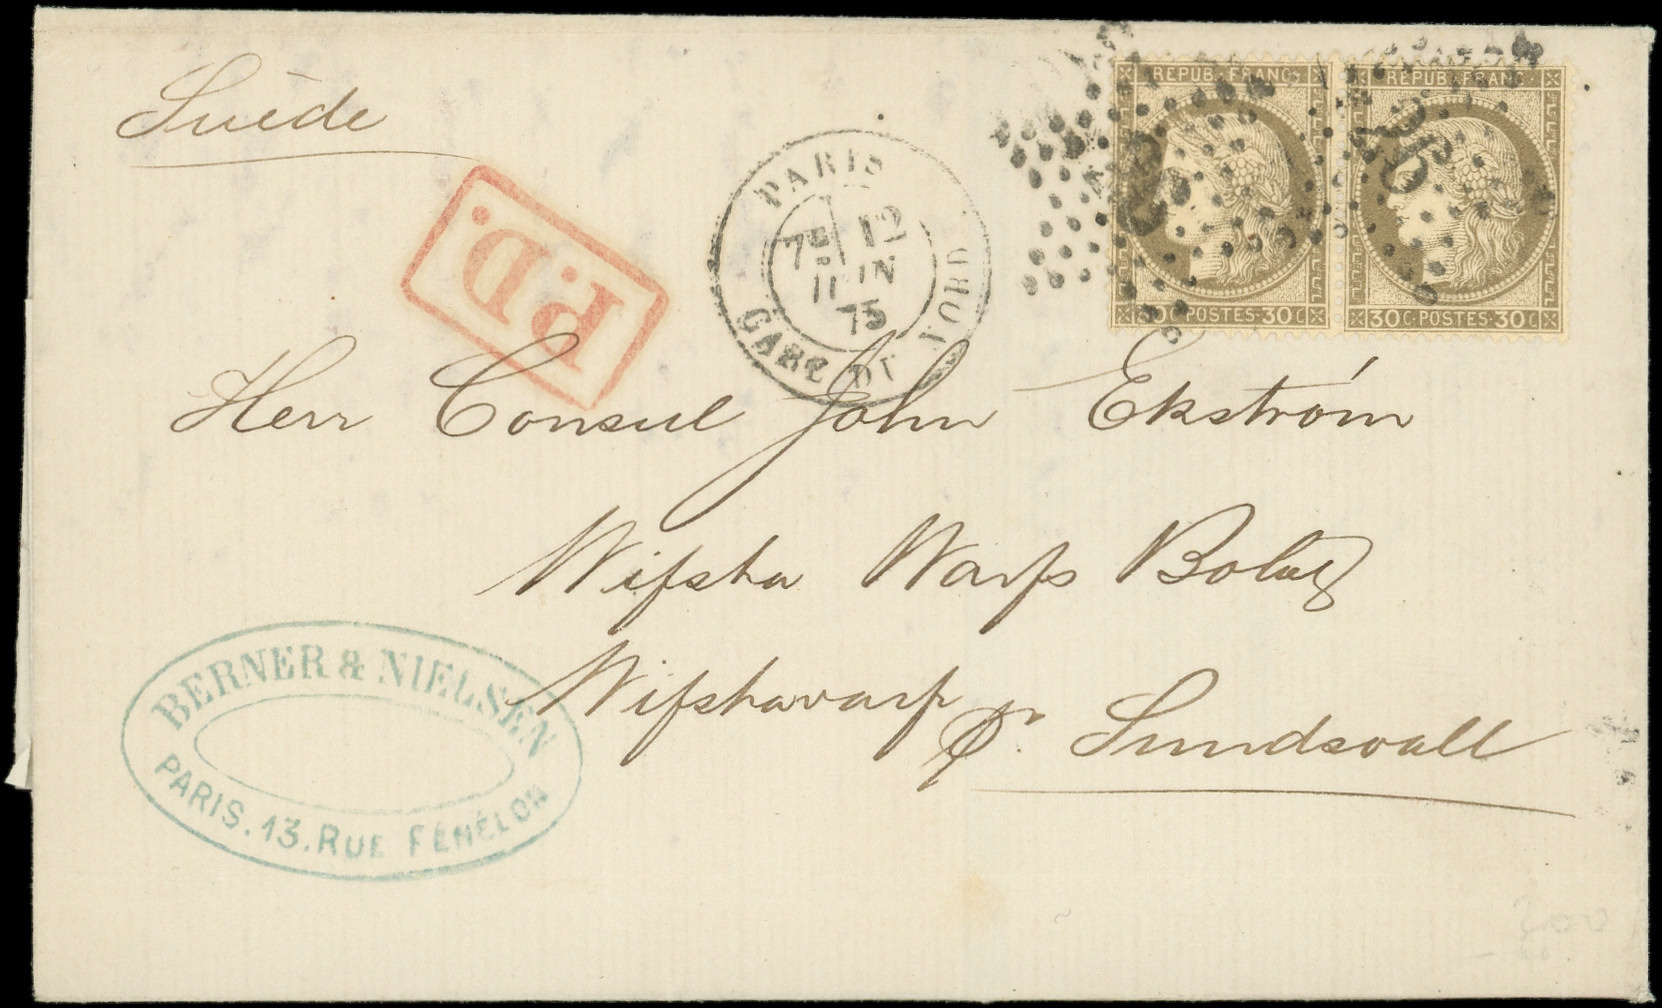 Suède
REPUB. FRANC.
REPUB. FRANC.
30 C. POSTES. 30 C.
30 C. POSTES. 30 C.
26
PARIS
7E 12
JUIN
75
GARE DU NORD
P.D.
Herr Consul John Ekström
Wifsta Warfs Bolag
Wifstavarf
pr Sundsvall
BERNER & NIELSEN
PARIS. 13. RUE FÉNÉLON